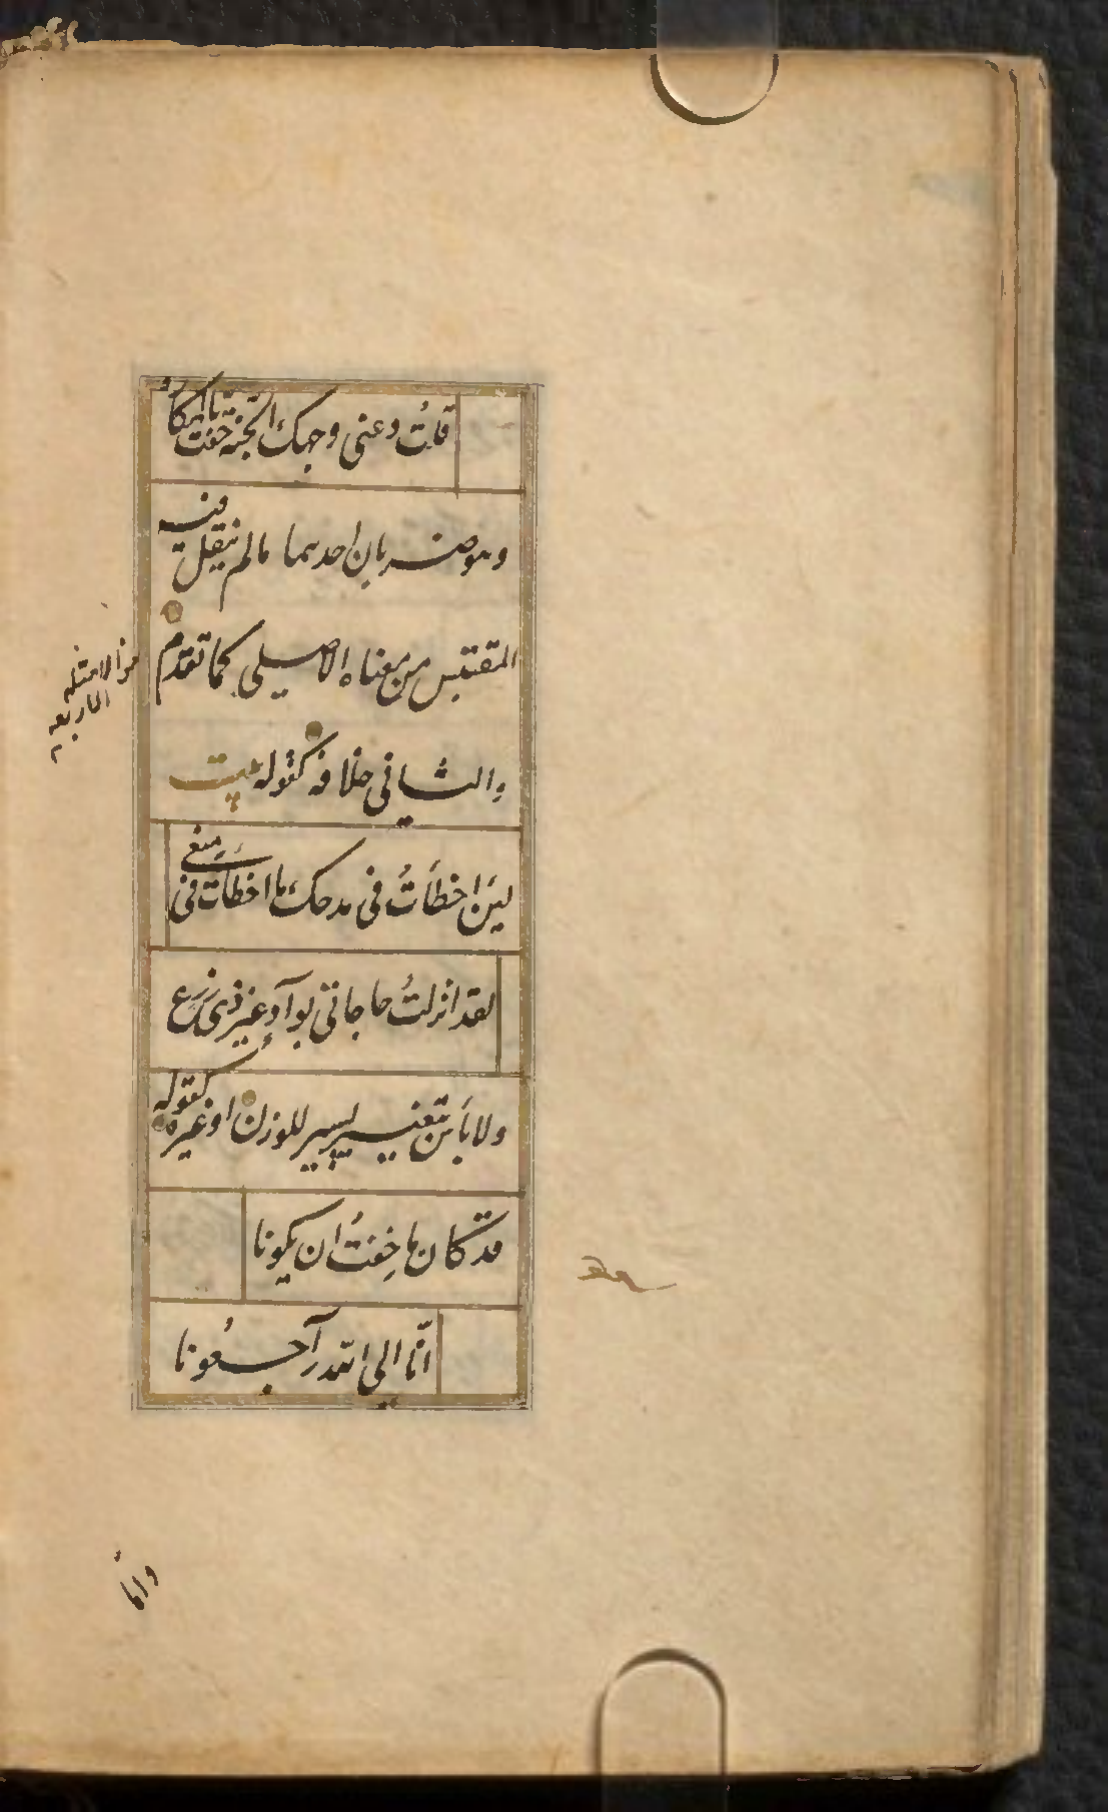 قلت دعنى وجهك الجنة حفت بالمكاره
وهو ضربان احدهما مالم ينقل فيه
المقتبس من معناه الاصلى كما تقدم
من الامثلة
الاربعة
والثانى خلافه كقوله بيت
لين اخطأتُ فى مدحك ما اخطأت فى منعى
لقد انزلتُ حاجاتى بوآدٍ غير ذى زرع
ولا بأس بتغيير يسير للوزن او غيره كقوله
قد كان ما خِفتُ ان يكونا
انّا الى الله رآجعُونا
وامّا